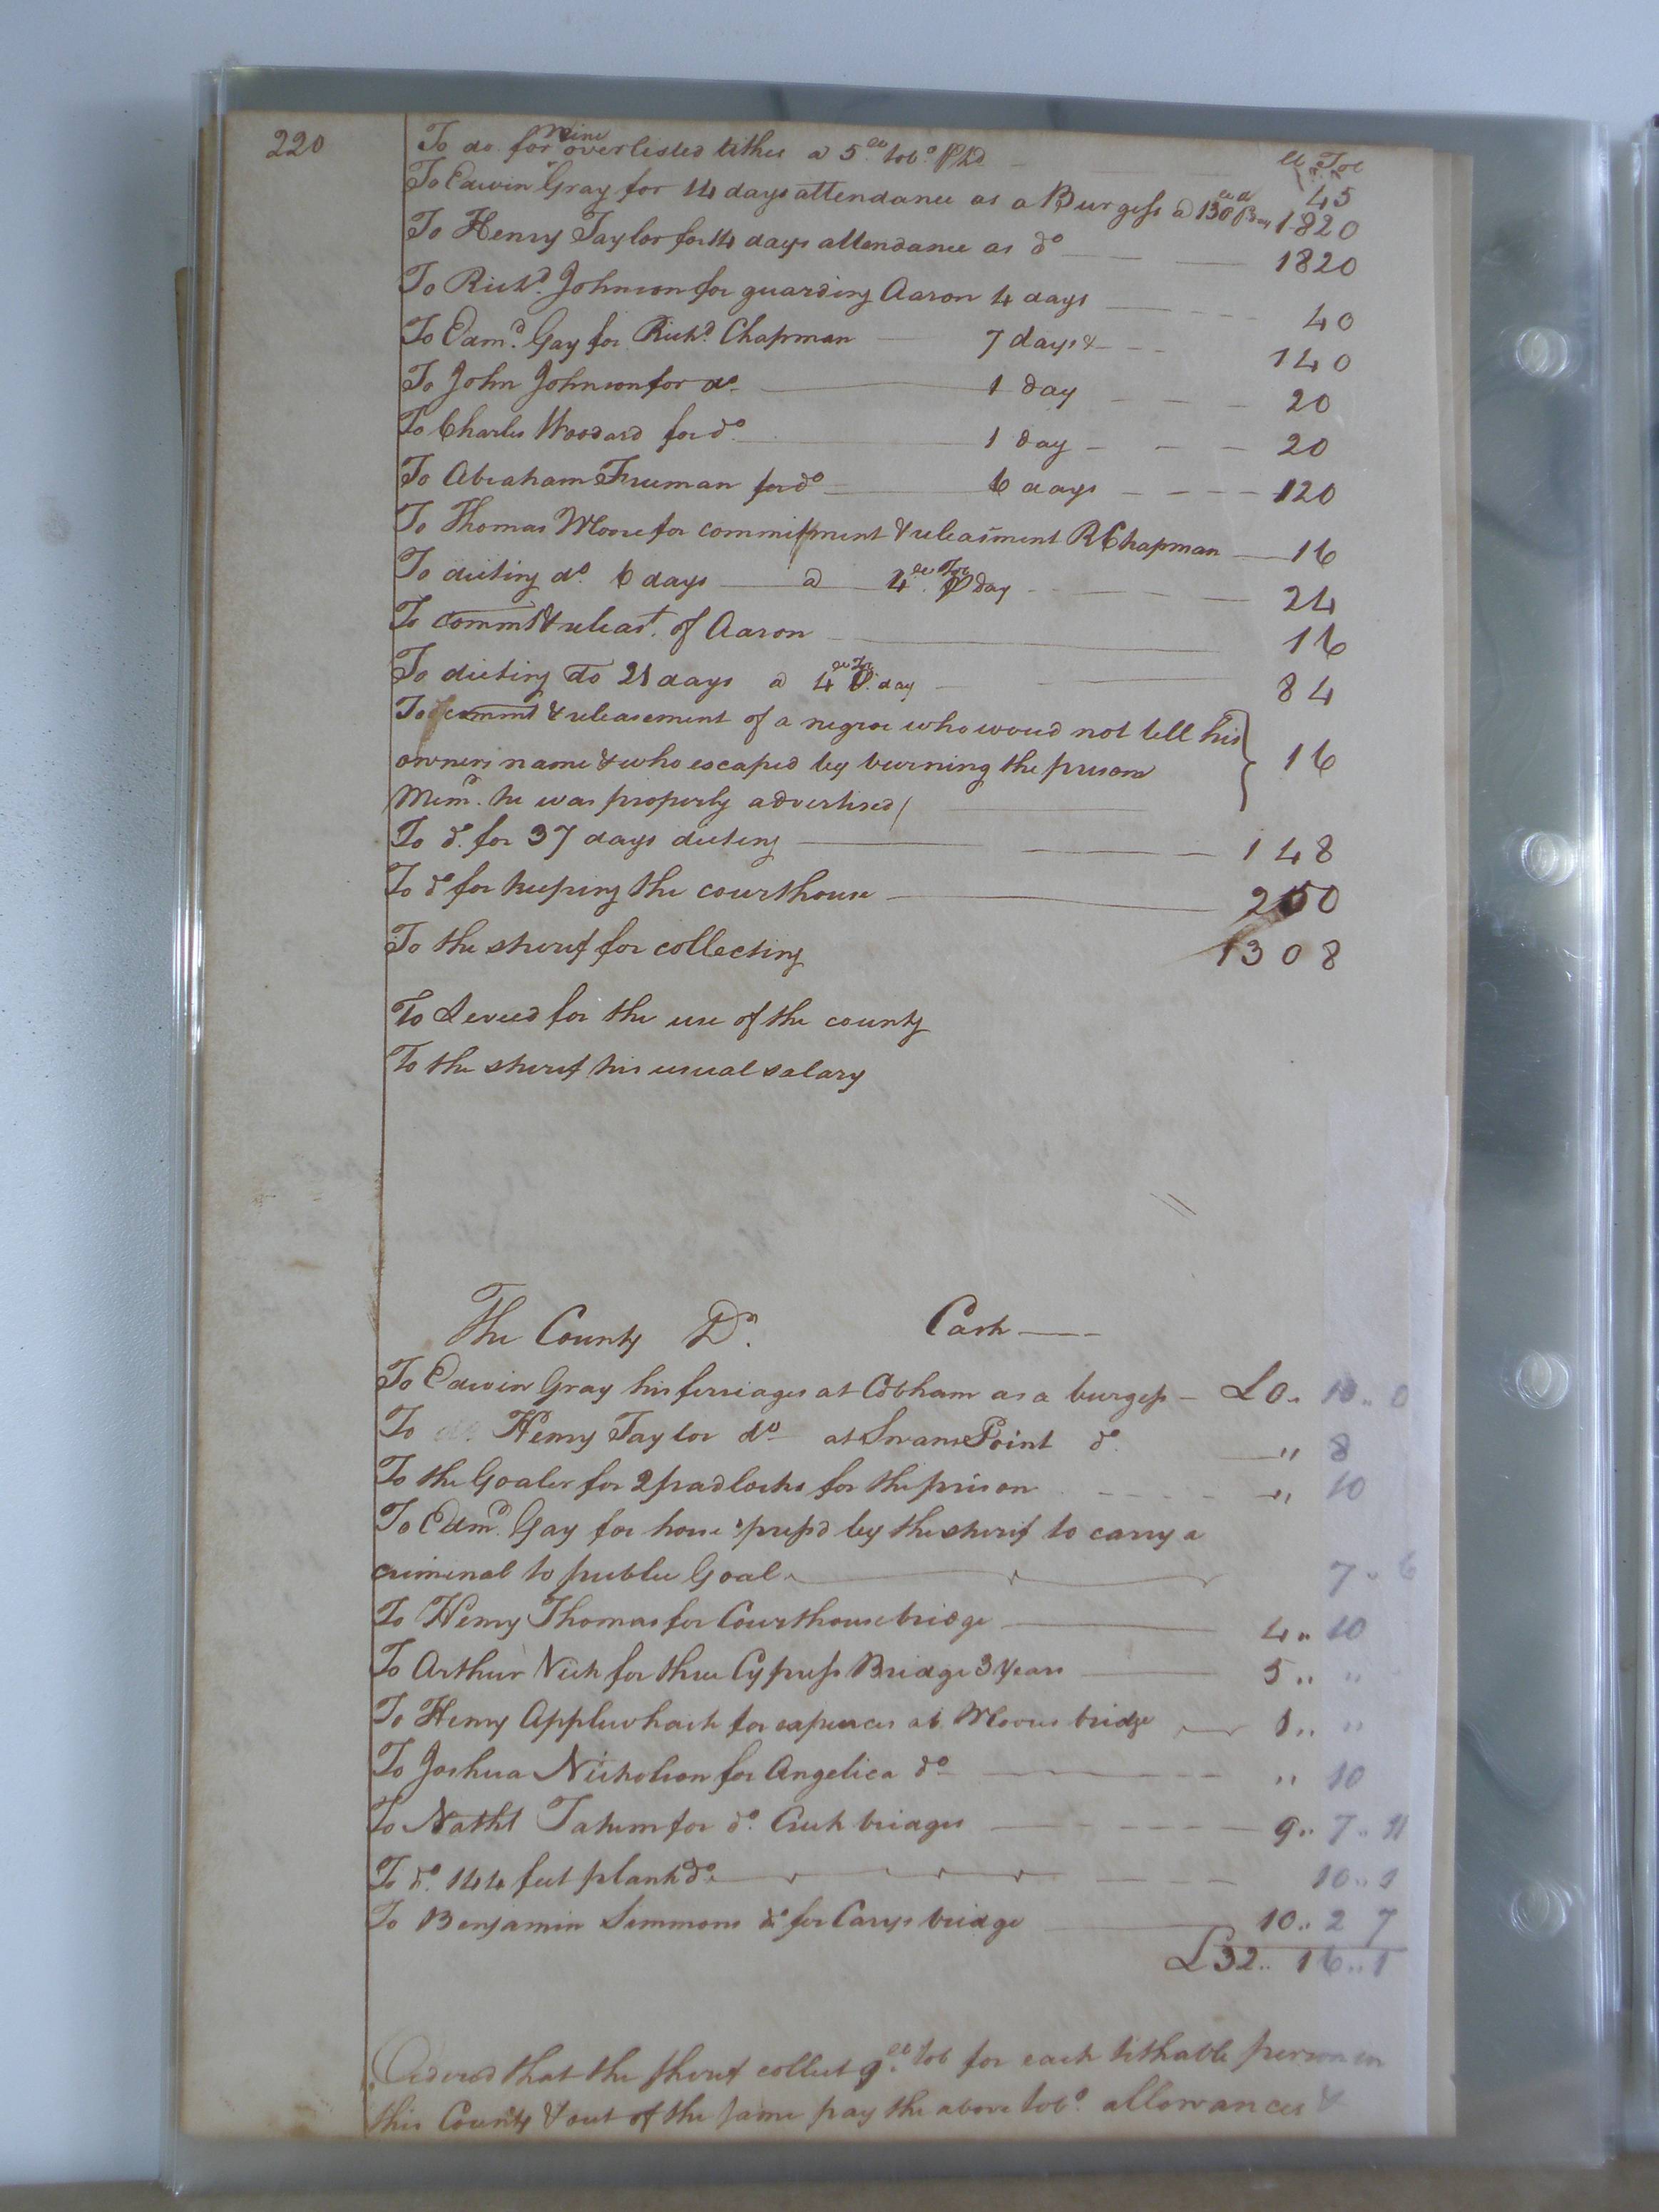 220
To do. for nine overlisted tithes a 5 lb tobo. Pd. lb Tob 45
To Edwin Gray for 14 days attendance as a Burgess a 130 P Day 1820
To Henry Taylor for 14 days attendance as do 1820
To Richd. Johnson for guarding Aaron 4 days 40
To Edmd. Gay for Richd. Chapman 7 days 140
To John Johnson for do. 1 day 20
To Charles Woodard for do. 1 day 20
To Abraham Freeman for do 6 days 120
To Thomas Moore for commitment & releasment R Chapman 16
To dieting do. 6 days a 4 lb Tob P day 24
To commt & releast. of Aaron 16
To dieting do 21 days a 4 lb Tob P. day 84
To commt & releasement of a negroe who woud not tell his
owners name & who escaped by burning the prison 16
Memd. he was properly advertised
To do. for 37 days dieting 148
To do for keeping the courthouse 250
To the sherif for collecting 1308
To Levied for the use of the county
To the sherif his usual salary
The County Dr. Cash
To Edwin Gray his ferriages at Cobham as a burgess £0.. 10.. 0
To Henry Taylor do at Swans Point do. " 8
To the Goaler for 2 padlocks for the prison " 10
To Edmd. Gay for horse presd by the sherif to carry a
criminal to public Goal 7.. 6
To Henry Thomas for Courthouse bridge 4.. 10
To Arthur for three Cypress Bridge 3 Years 5.. "
To Henry Applewhaite for expences at Moores bridge 1.. "
To Joshua Nicholson for Angelica do " 10
To Nathl Tatum for do. Creek bridges 9.. 7.. 11
To do. 144 feet plank do. 10.. 1
To Benjamin Simmons do for Carys bridge 10.. 2 7
£32.. 16.. 1
Ordered that the sherif collect 9 lb tob for each tithable person in
this County & out of the same pay the above tobo. allowances &